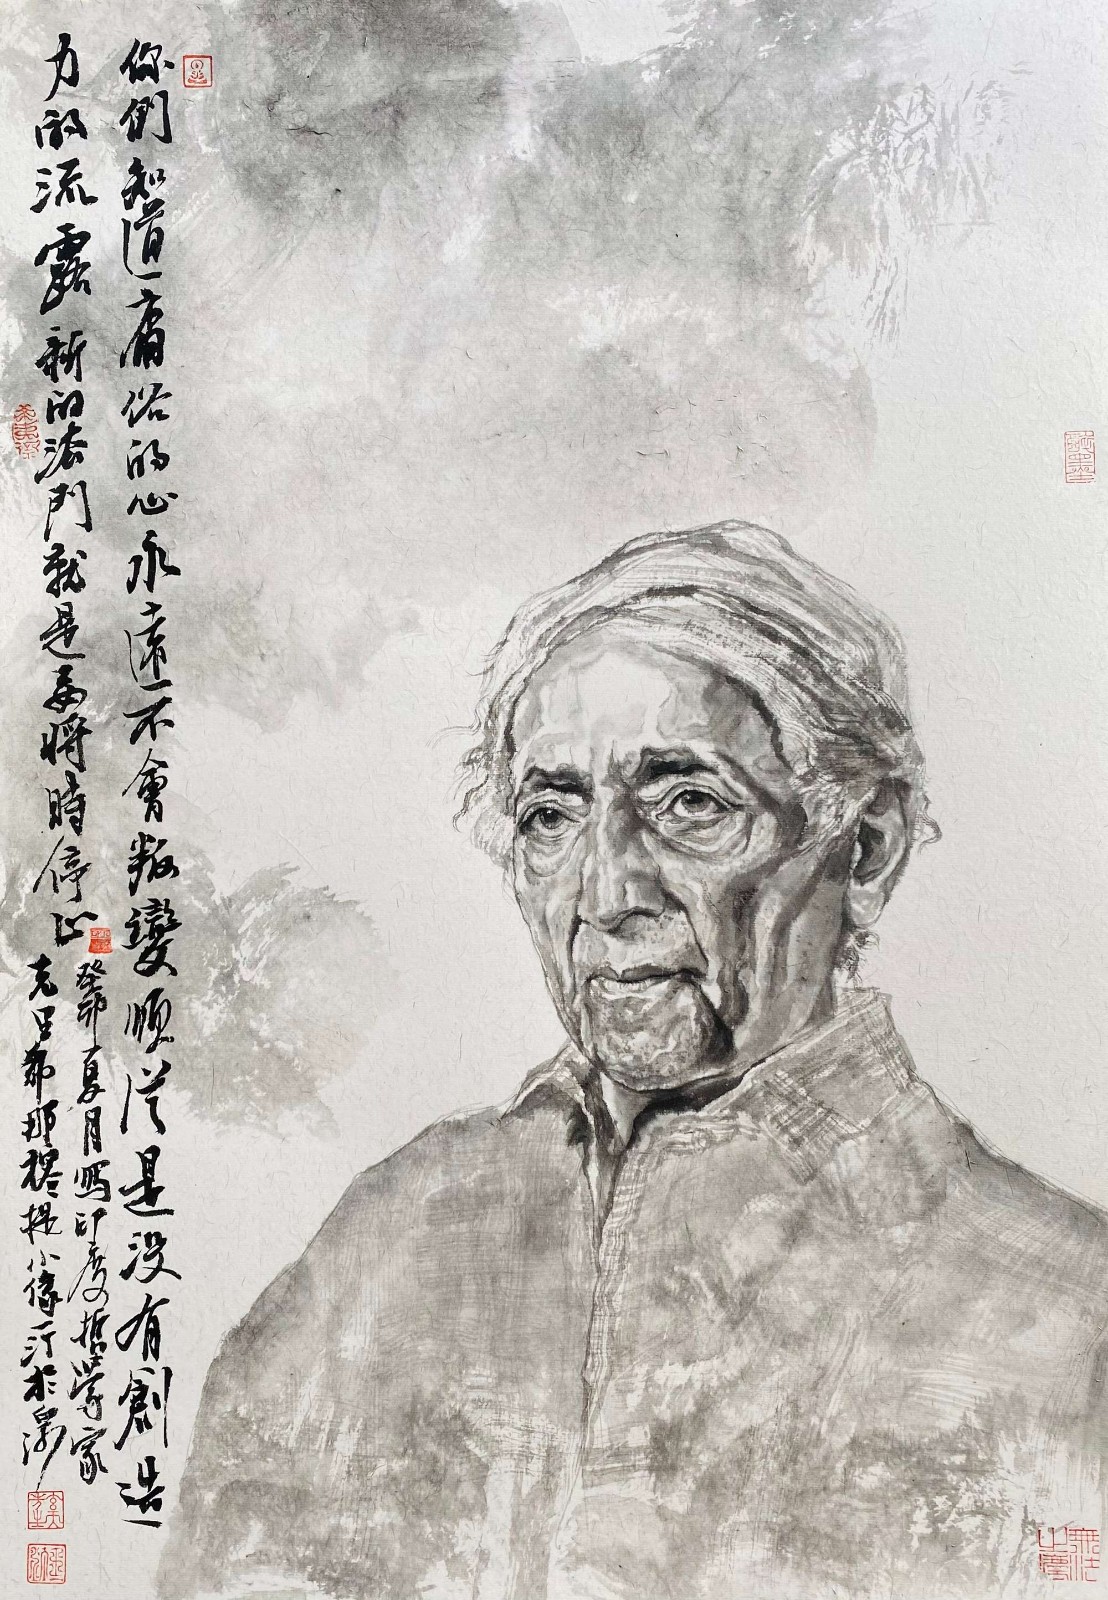 你們知道庸俗的心永遠不會叛變順從是沒有創造
力的流露新的法門就是將時停止
癸卯夏月寫印度哲學家
克里希那穆提小像汀於泉